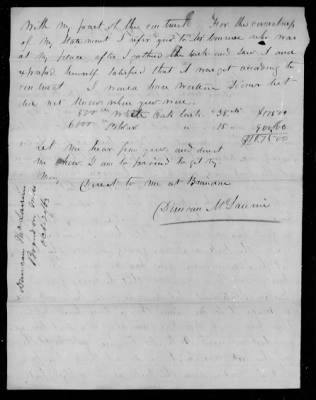 With my part of the contract. For the correctness
of my Statement I refer you to Mr. who was
at my house after I gathered the and saw it and
expressed himself satisfied that it was got according to
contract I would have written sooner but
did not know where you were.
500 White Oak 35 cts $175.00
6000 " 15 " 900.00
$1075.00
Let me hear from you, and direct
me how I am to proceed to get my
Money
Direct to me at Brandon
Duncan McLaurin
Duncan McLaurin
Brandon Miss